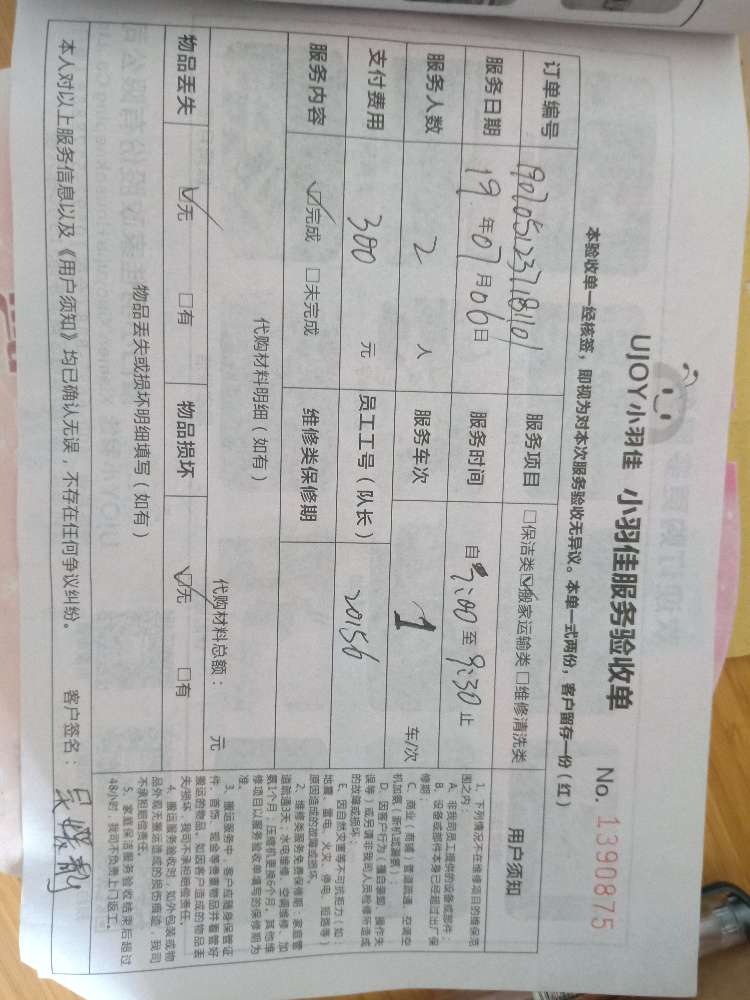 UJOY小羽佳 小羽佳服务验收单 No. 1390875
本验收单一经核签，即视为对本次服务验收无异议。本单一式两份，客户留存一份（红）
订单编号 190705123718101 服务项目 □保洁类 ☑搬家运输类 □维修清洗类
服务日期 19 年 07 月 06 日 服务时间 自 7:00 至 9:30 止
服务人数 2 人 服务车次 1 车/次
支付费用 300 元 员工工号（队长） 20156
服务内容 ☑完成 □未完成 维修类保修期
代购材料明细（如有）
代购材料总额： 元
物品丢失 ☑无 □有 物品损坏 ☑无 □有
物品丢失或损坏明细填写（如有）
本人对以上服务信息以及《用户须知》均已确认无误，不存在任何争议纠纷。 客户签名：
用户须知
1、下列情况不在维修项目的维保范
围之内：
A、非我司员工提供的设备或部件；
B、设备或部件本身已经超过出厂保
修期；
C、商业（商铺）管道疏通、空调空
机加氨（新机或漏氨）；
D、因客户行为（擅自装卸、操作失
误等）或已请非我司人员检修所造成
的故障或损坏；
E、因自然灾害等不可抗拒力（如：
地震、雷电、火灾、停电、短路等）
原因造成的故障或损坏。
2、维修类服务免费保修期：家庭管
道疏通3天；水电维修、空调维修、加
氨1个月；压缩机更换6个月，其他维
修项目以服务验收单填写的保修期为
准。
3、搬运服务中，客户应随身保管证
件、首饰、现金等贵重物品并看管好
搬运的物品，如因客户造成的物品丢
失/损坏，我司不承担赔偿责任。
4、搬运服务验收时，如外包装或物
品外观无搬运造成的损伤痕迹，我司
不承担赔偿责任。
5、家庭保洁服务验收结束后超过
48小时，我司不负责上门返工。